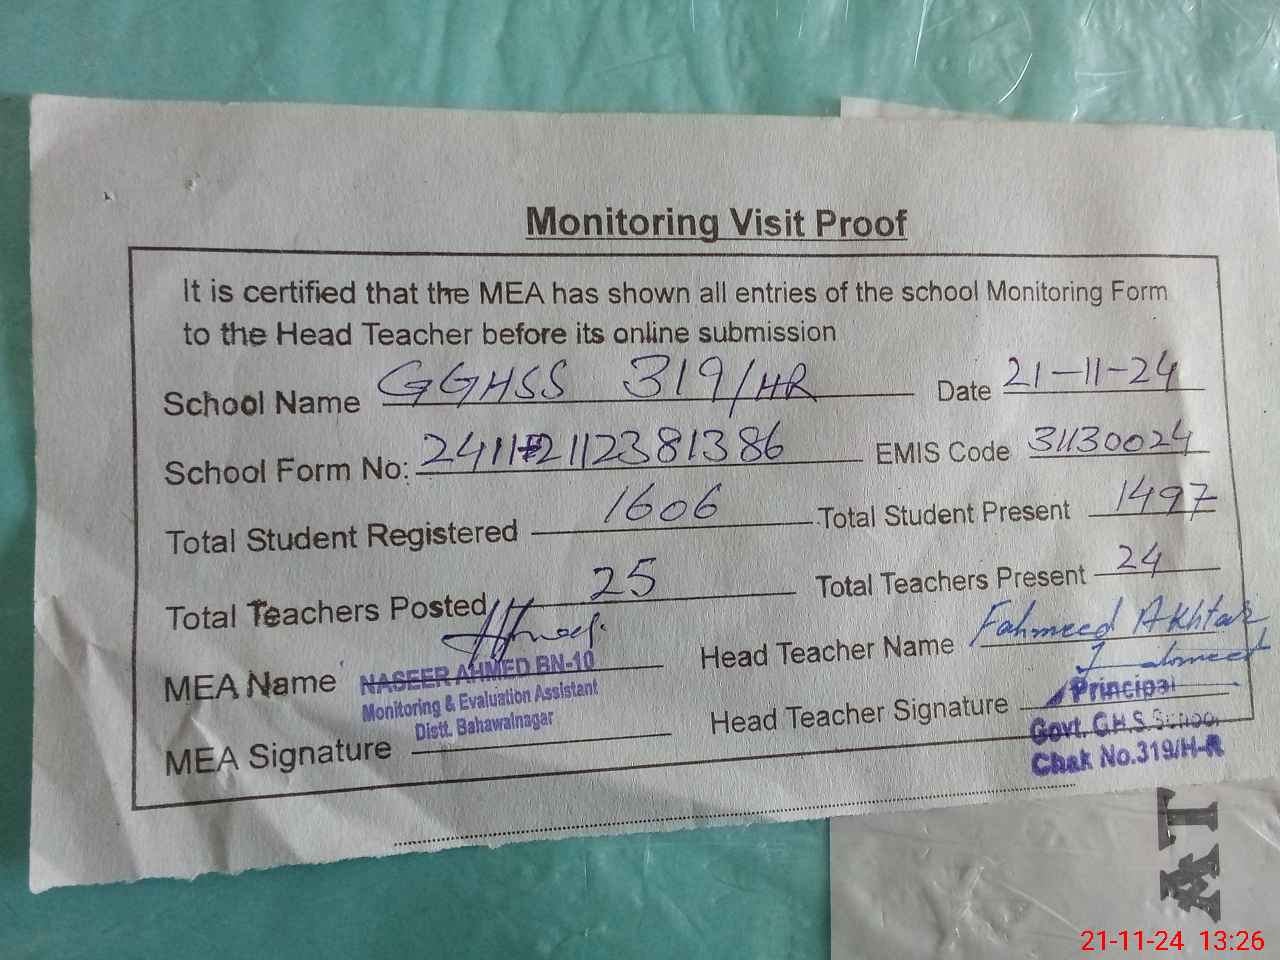 Monitoring Visit Proof
It is certified that the MEA has shown all entries of the school Monitoring Form
to the Head Teacher before its online submission
School Name GGHSS 319/HR Date 21-11-24
School Form No: 24112112381386 EMIS Code 31130024
Total Student Registered 1606 Total Student Present 1497
Total Teachers Posted 25 Total Teachers Present 24
MEA Name Head Teacher Name Fahmeed Akhtar
NASEER AHMED BN-10
Monitoring & Evaluation Assistant
Distt. Bahawalnagar
MEA Signature Head Teacher Signature
Principal
Govt. G.H.S. School
Chak No.319/H-R
AT
21-11-24 13:26